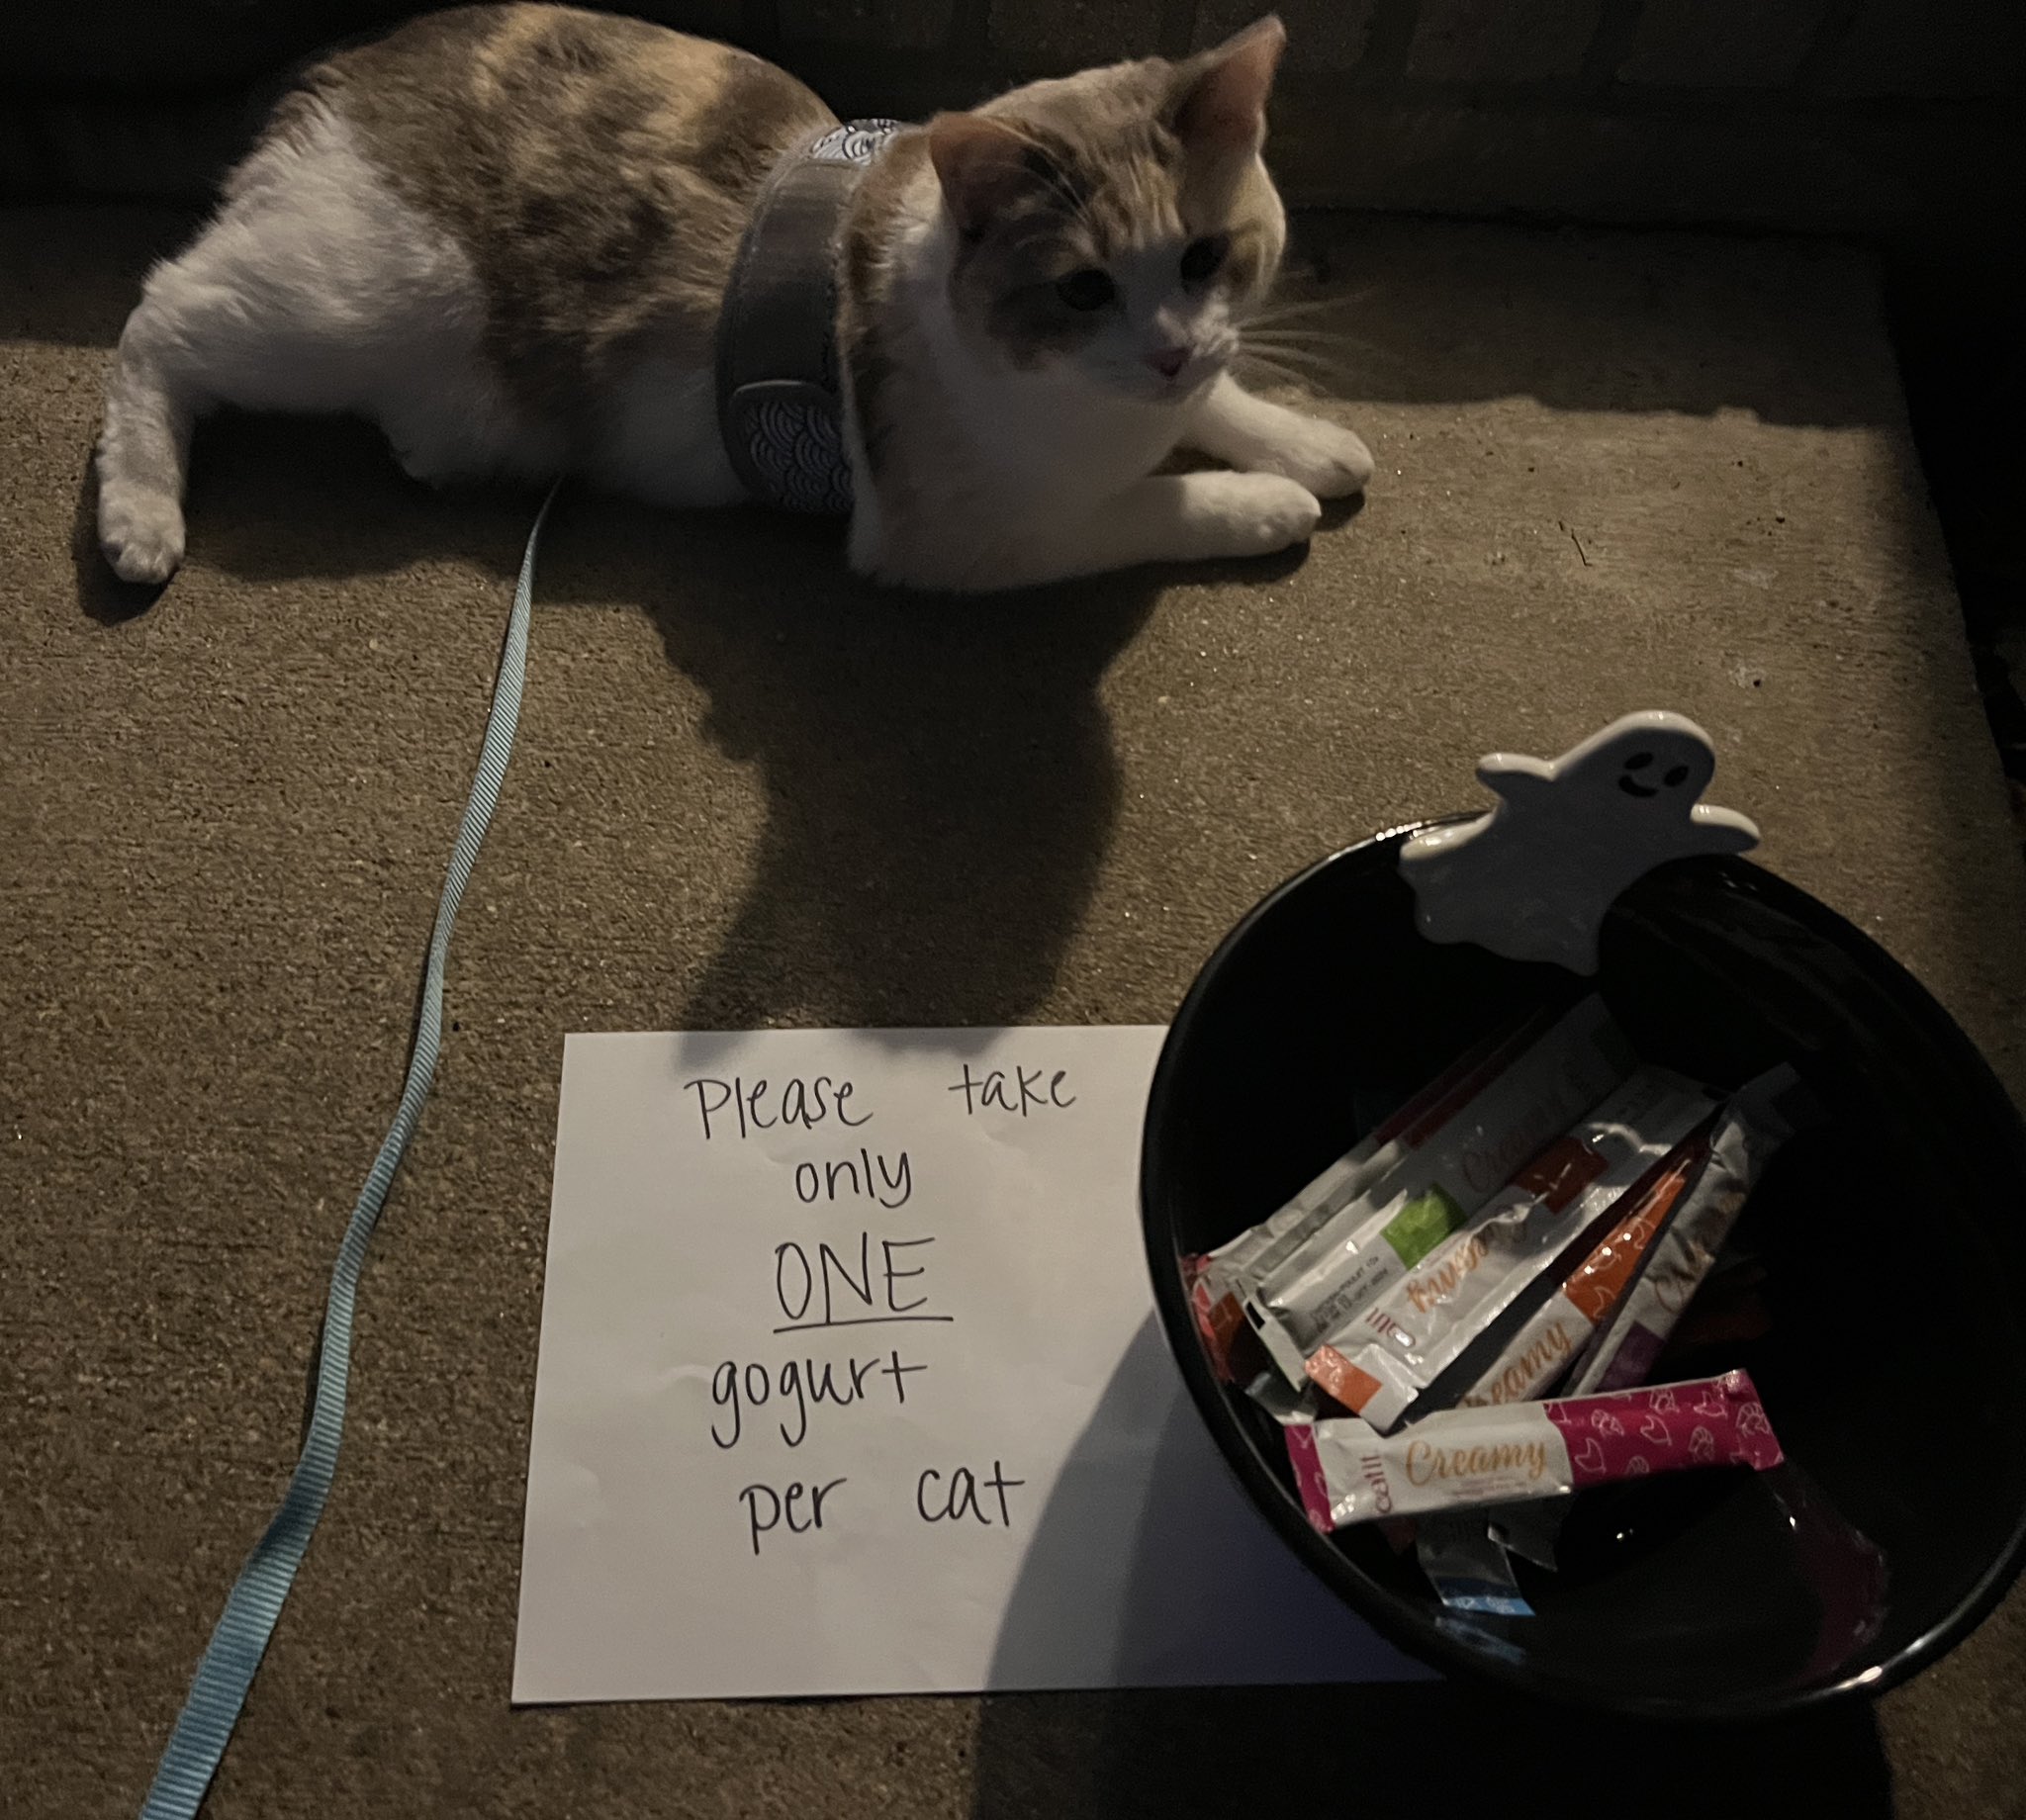 Please take
only
ONE
gogurt
per cat
Creamy
Creamy
catit
Creamy
catit
Creamy